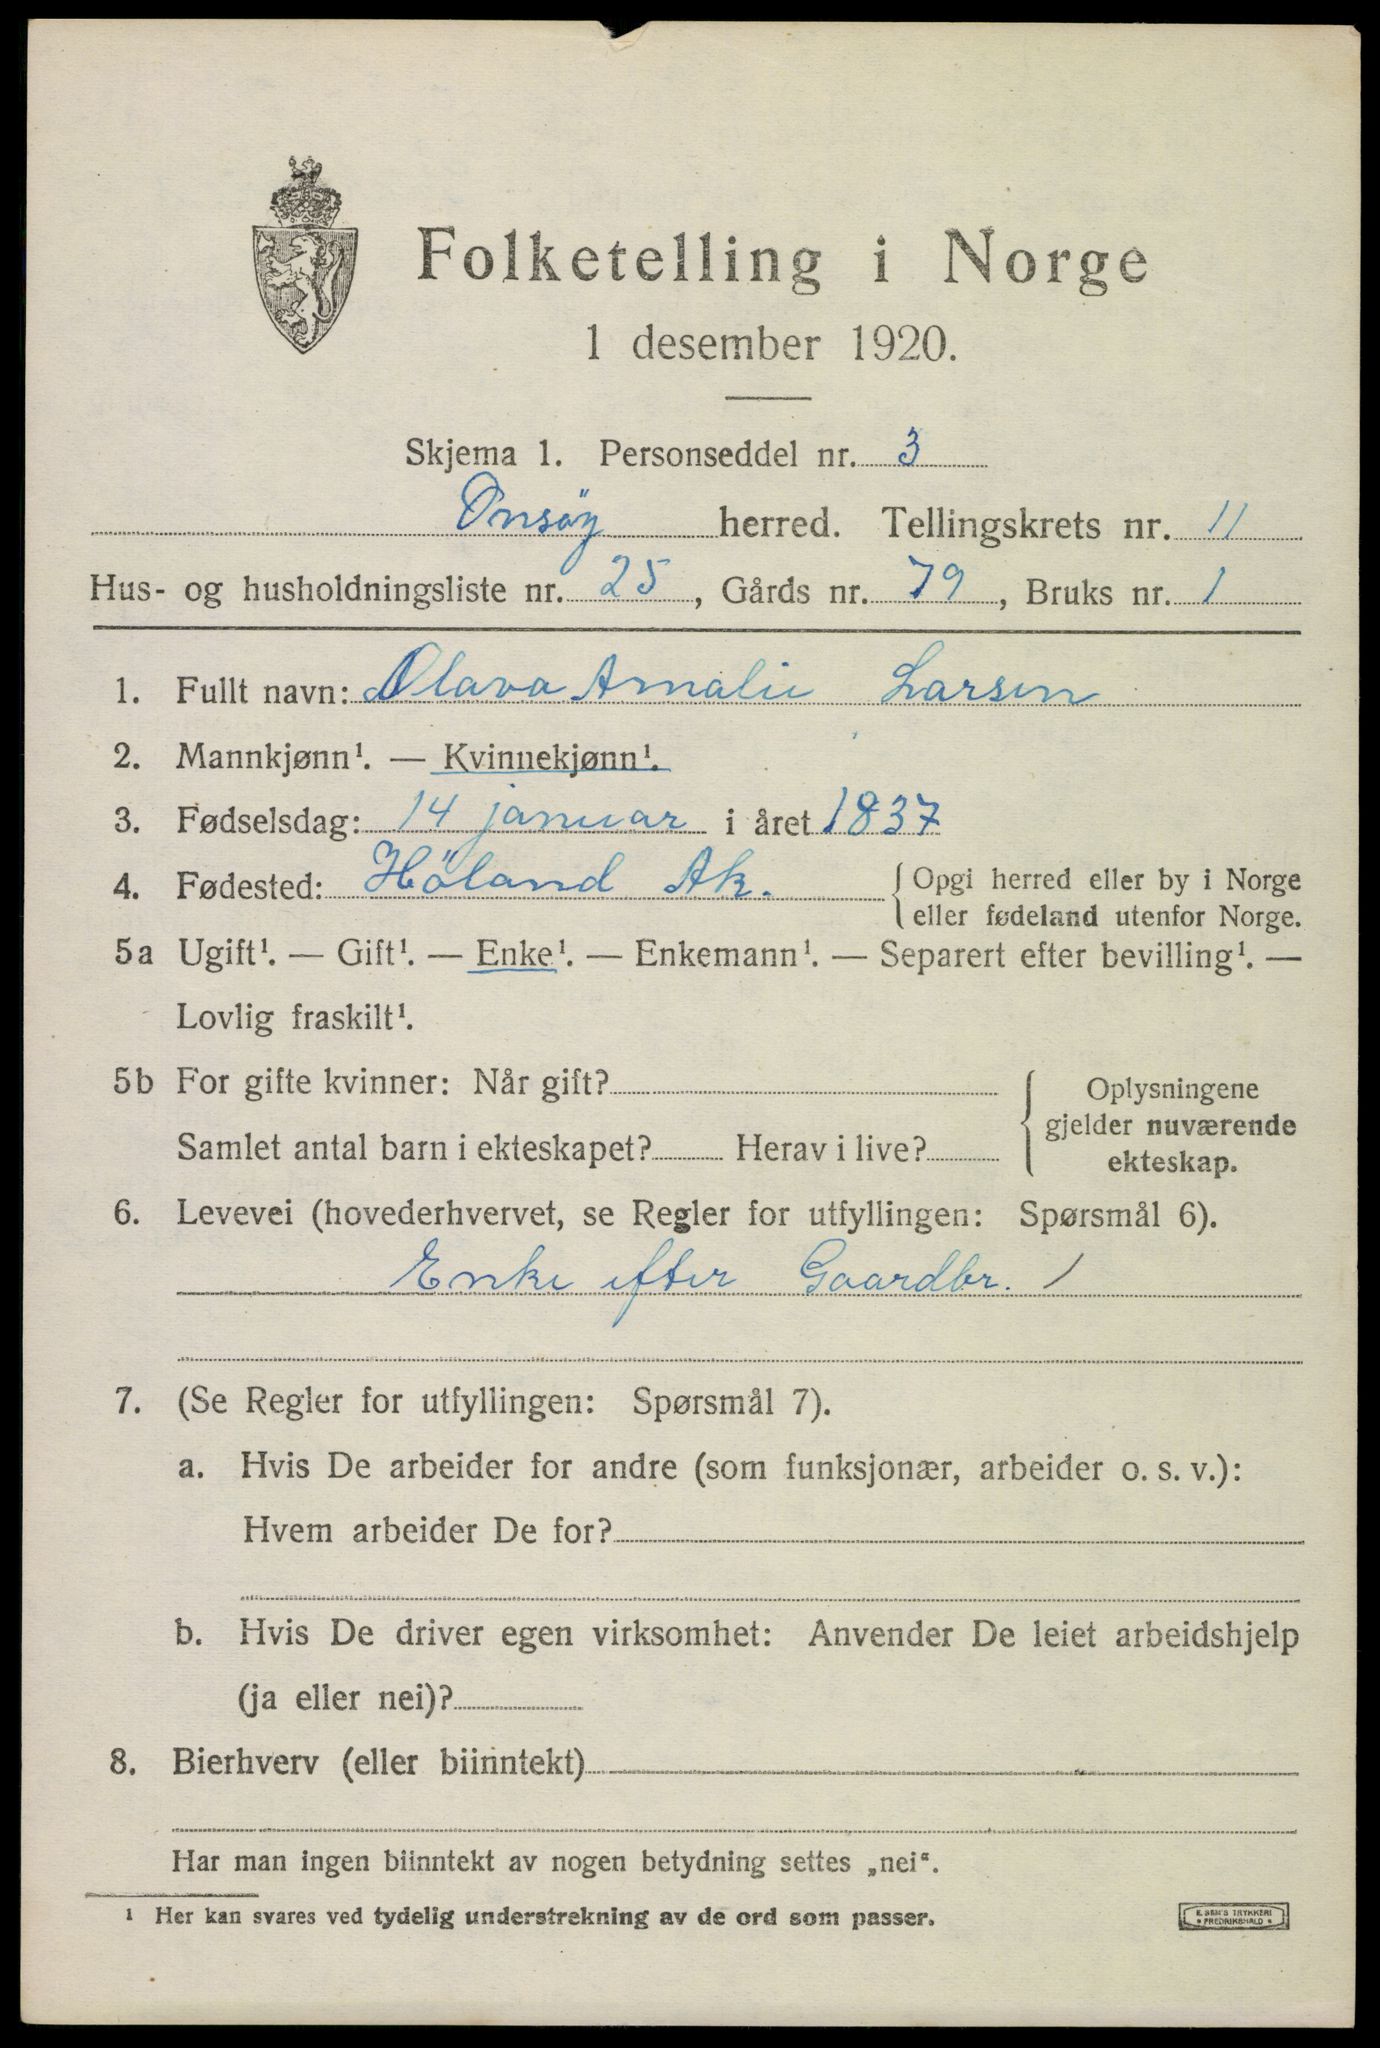 Folketelling i Norge
1 desember 1920.
Skjema 1. Personseddel nr. 3
Onsöy herred. Tellingskrets nr. 11
Hus- og husholdningsliste nr. 25, Gårds nr. 79, Bruks nr. 1
1. Fullt navn: Olava Amalie Larsen
2. Mannkjønn¹. — Kvinnekjønn¹.
3. Fødselsdag: 14 januar i året 1837
4. Fødested: Höland Ak. {Opgi herred eller by i Norge
eller fødeland utenfor Norge.
5a Ugift¹. — Gift¹. — Enke¹. — Enkemann¹. — Separert efter bevilling¹. —
Lovlig fraskilt¹.
5b For gifte kvinner: Når gift? Oplysningene
gjelder nuværende
Samlet antal barn i ekteskapet? Herav i live? ekteskap.
6. Levevei (hovederhvervet, se Regler for utfyllingen: Spørsmål 6).
Enke efter Gaardbr. /
7. (Se Regler for utfyllingen: Spørsmål 7).
a. Hvis De arbeider for andre (som funksjonær, arbeider o. s. v.):
Hvem arbeider De for?
b. Hvis De driver egen virksomhet: Anvender De leiet arbeidshjelp
(ja eller nei)?
8. Bierhverv (eller biinntekt)
Har man ingen biinntekt av nogen betydning settes „nei“.
¹ Her kan svares ved tydelig understrekning av de ord som passer.
E. SEM'S TRYKKERI
FREDRIKSHALD